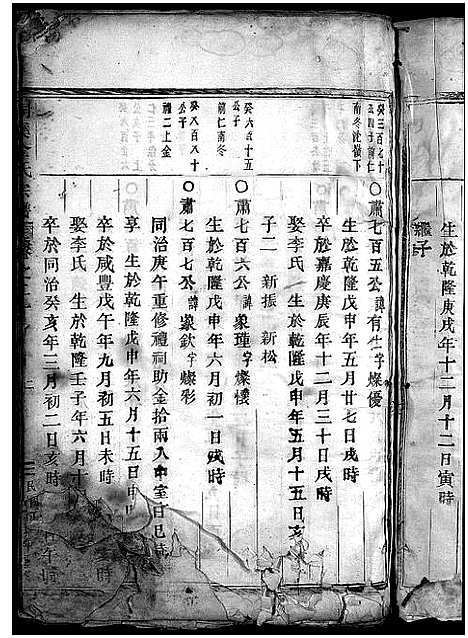 生於乾隆庚戌年十二月十二日寅時
繼子
〇肅七百五公諱有生字燦優
生於乾隆戊申年五月廿七日戌時
卒於嘉慶庚辰年十二月三十日戌時
娶李氏 生於乾隆戊申年五月十五日亥
子二 新振 新松
癸六百十五
公子
前仁南冬
〇肅七百六公諱象瑾字燦樸
生於乾隆戊申年六月初一日戌時
癸八百八十
公子
禮二上金
〇肅七百七公諱象欽字燦彩
同治庚午重修禮祠助金拾兩入中室日巳時
享 生於乾隆戊申年六月十五日申
卒於咸豐戊午年九月初五日未時
娶李氏 生於乾隆壬子年六月十
卒於同治癸亥年三月初二日亥時